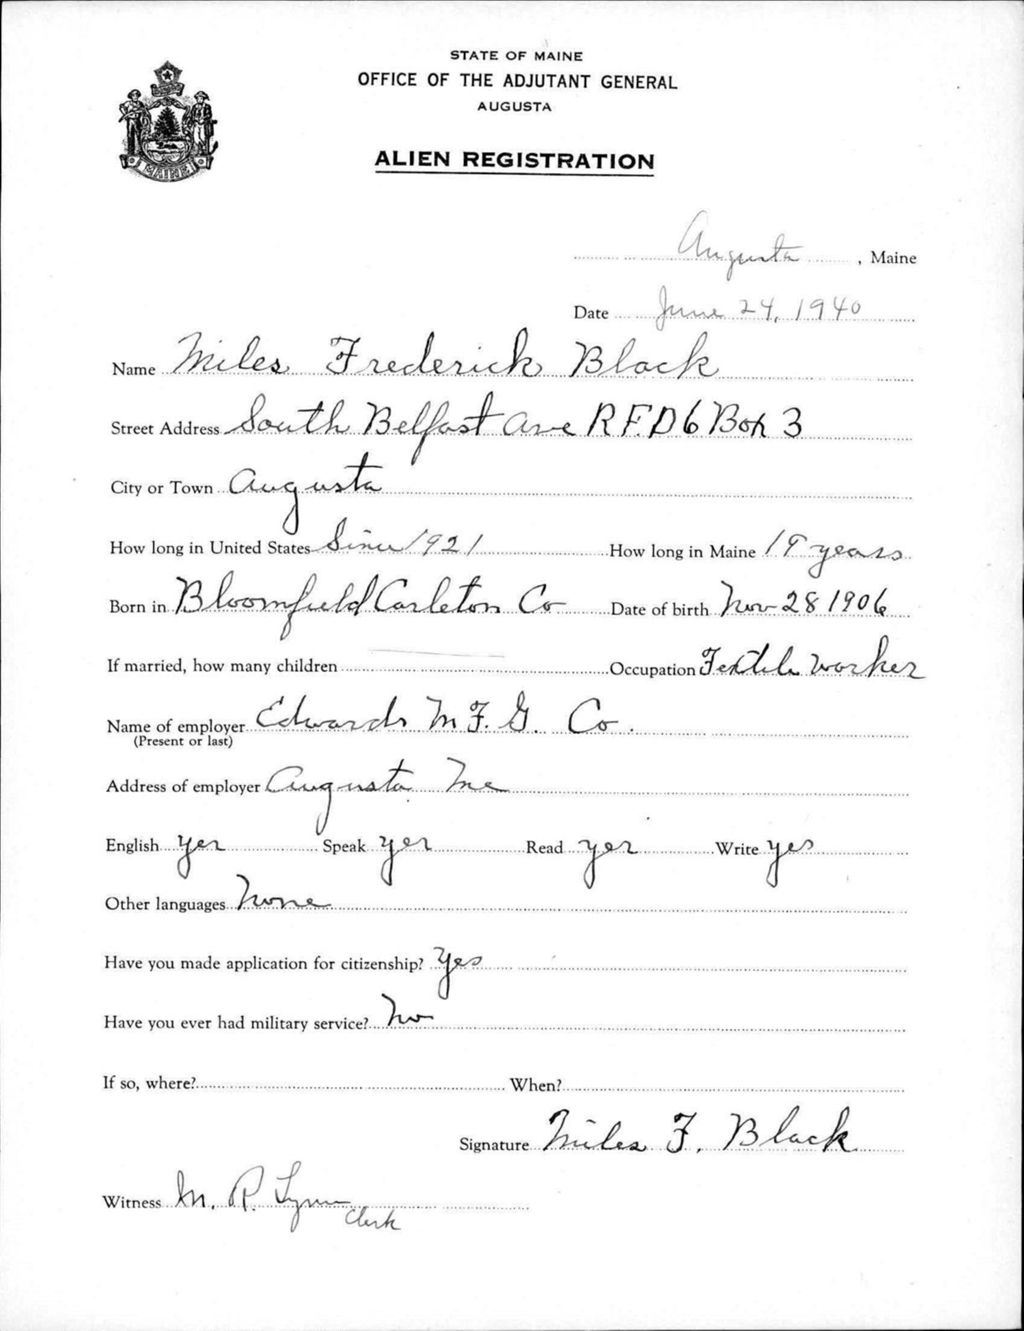 STATE OF MAINE
OFFICE OF THE ADJUTANT GENERAL
AUGUSTA
ALIEN REGISTRATION
MAINE
Augusta, Maine
Date June 24, 1940
Name Miles Frederick Black
Street Address South Belfast Ave R.F.D 6 Box 3
City or Town Augusta
How long in United States Since 1921 How long in Maine 19 years
Born in Bloomfield Carleton Co Date of birth Nov 28 1906
If married, how many children Occupation Textile worker
Name of employer Edwards M F. G. Co.
(Present or last)
Address of employer Augusta Me
English yes Speak yes Read yes Write yes
Other languages None
Have you made application for citizenship? Yes
Have you ever had military service? No
If so, where? When?
Signature Miles F. Black
Witness M. R. Lynn
Clerk